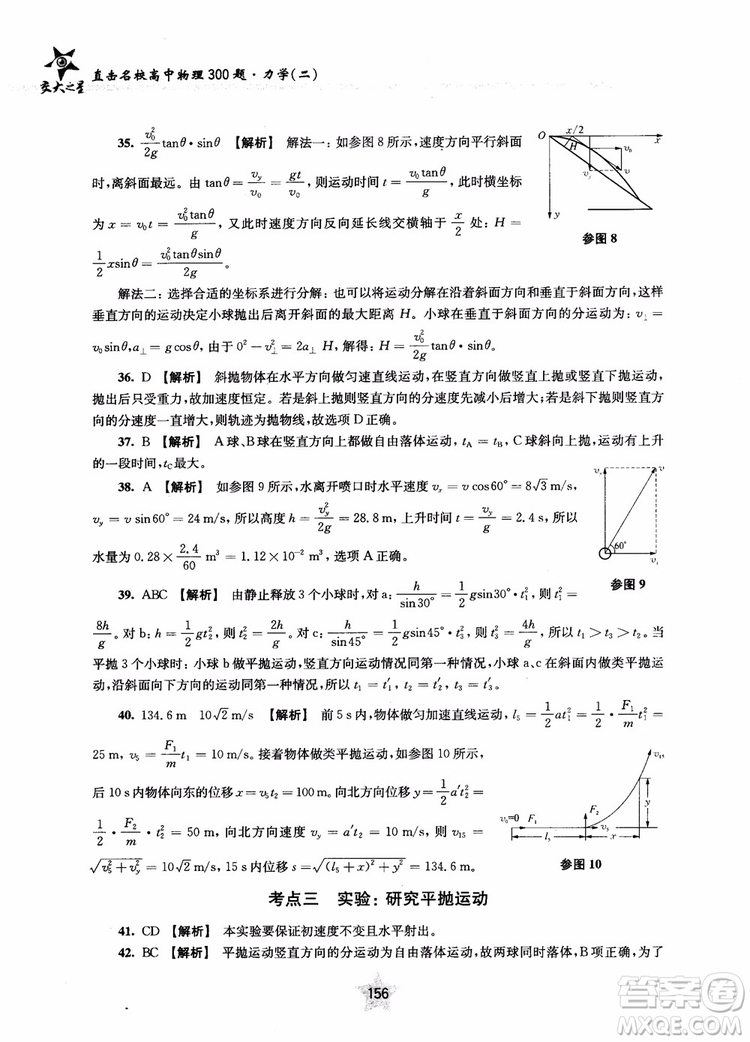 交大之星
直击名校高中物理300题·力学(二)
35. v₀²/2g tanθ·sinθ 【解析】 解法一:如参图8所示,速度方向平行斜面
时,离斜面最远。由tanθ=v_y/v₀=gt/v₀,则运动时间t=v₀tanθ/g,此时横坐标
为x=v₀t=v₀²tanθ/g,又此时速度方向反向延长线交横轴于x/2处:H=
1/2 xsinθ=v₀²tanθsinθ/2g。
O x/2 x H v₀ v y
参图8
解法二:选择合适的坐标系进行分解:也可以将运动分解在沿着斜面方向和垂直于斜面方向,其
垂直方向的运动决定小球抛出后离开斜面的最大距离H。小球在垂直于斜面方向的分运动为:v⊥=
v₀sinθ,a⊥=gcosθ,由于0²-v⊥²=2a⊥H,解得:H=v₀²/2g tanθ·sinθ。
36. D 【解析】 斜抛物体在水平方向做匀速直线运动,在竖直方向做竖直上抛或竖直下抛运动,
抛出后只受重力作用,故加速度恒定。若是斜上抛则竖直方向的分速度先减小后增大,若斜下抛则竖直方向
的分速度一直增大,则轨迹为抛物线。故选项D正确。
37. B 【解析】 A球、B球在竖直方向上都做自由落体运动,t_A=t_B,C球斜向上抛,运动有上升
的一段时间,t_C最大。
38. A 【解析】 如参图9所示,水离开喷口时水平速度v_x=vcos60°=8√3 m/s,
v_y=vsin60°=24 m/s,所以高度h=v_y²/2g=28.8 m,上升时间t=v_y/g=2.4 s,所以
水量为0.28×2.4/60 m³=1.12×10⁻² m³,选项A正确。
v 60°
参图9
39. ABC 【解析】 由静止释放3个小球时,对a:h/sin30°=1/2 gsin30°·t₁²,则t₁²=
8h/g。对b:h=1/2 gt₂²,则t₂²=2h/g。对c:h/sin45°=1/2 gsin45°·t₃²,则t₃²=4h/g,所以t₁>t₃>t₂。当
平抛3个小球时:小球b做平抛运动,竖直方向运动情况同第一种情况,小球a、c在斜面内做类平抛运
动,沿斜面向下方向的运动同第一种情况,所以t₁=t₁′,t₂=t₂′,t₃=t₃′。
40. 134.6 m 10√2 m/s 【解析】 前5 s内,物体做匀加速直线运动,l₅=1/2 at₁²=1/2·F₁/m t₁²=
25 m,v₅=F₁/m t₁=10 m/s。接着物体做类平抛运动。如参图10所示,
后10 s内物体向东的位移x=v₅t₂=100 m。向北方向位移y=1/2 a′t₂²=
1/2·F₂/m·t₂²=50 m,向北方向速度v_y=a′t₂=10 m/s,则v₁₅=
√(v₅²+v_y²)=10√2 m/s,15 s内位移s=√((l₅+x)²+y²)=134.6 m。
v₀=0 F₁ F₂ v₅ l₅ x y
参图10
考点三 实验:研究平抛运动
41. CD 【解析】 本实验要保证初速度不变且水平射出。
42. BC 【解析】 平抛运动竖直方向的分运动为自由落体运动,故两球同时落体,B项正确;为了
156
答案圈
MXQE.COM